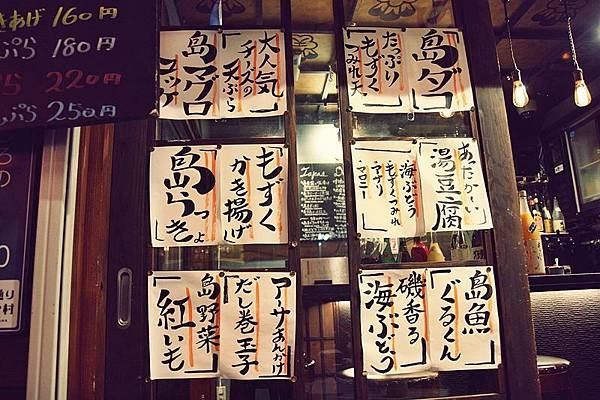 きあげ 160円
ぷら 180円
ら 220円
ぷら 250円
島マグロ
コッケ
大人気
チーズの
天ぷら
たっぷり
もずく
つみれ天
島ダコ
島らっきょ
もずく
かき揚げ
海ぶどう
もずくつみれ
アオリ
マロニー
あったか～い
湯豆腐
島野菜
紅いも
アーサあんかけ
だし巻玉子
磯香る
海ぶどう
島魚
ぐるくん